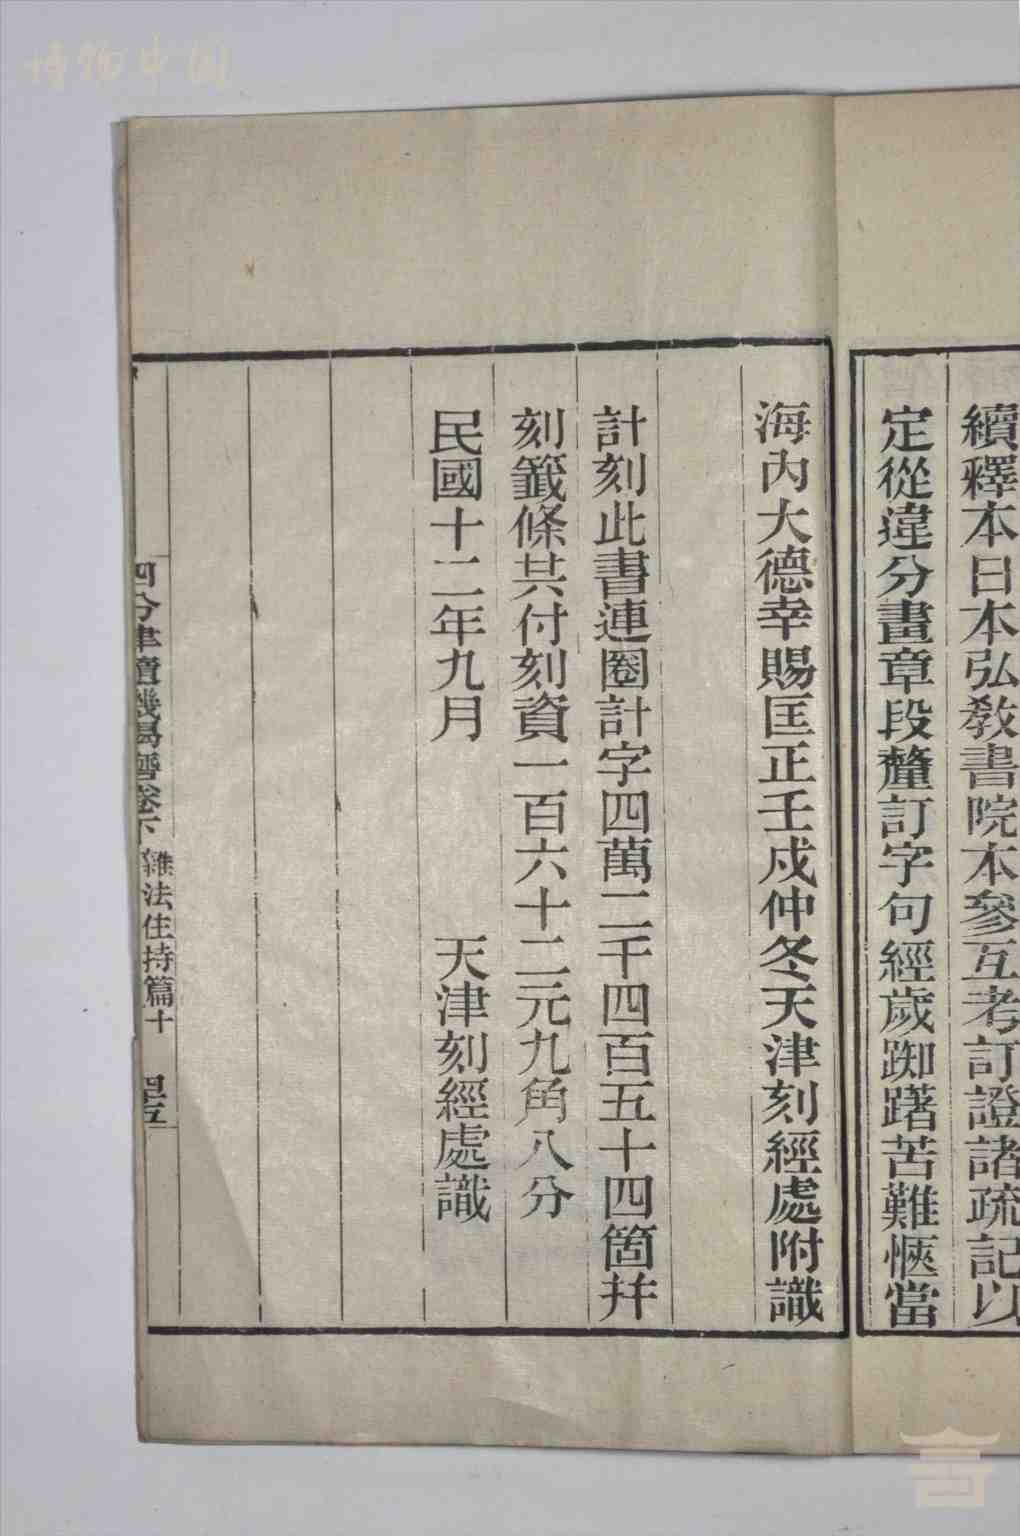 博物中国
續釋本日本弘敎書院本參互考訂證諸疏記以
定從違分畫章段釐訂字句經歲踟躇苦難愜當
海內大德幸賜匡正壬戍仲冬天津刻經處附識
計刻此書連圈計字四萬二千四百五十四箇幷
刻籤條共付刻資一百六十二元九角八分
民國十二年九月　天津刻經處識
四分律隨機羯磨卷下　雜法住持篇十　四五